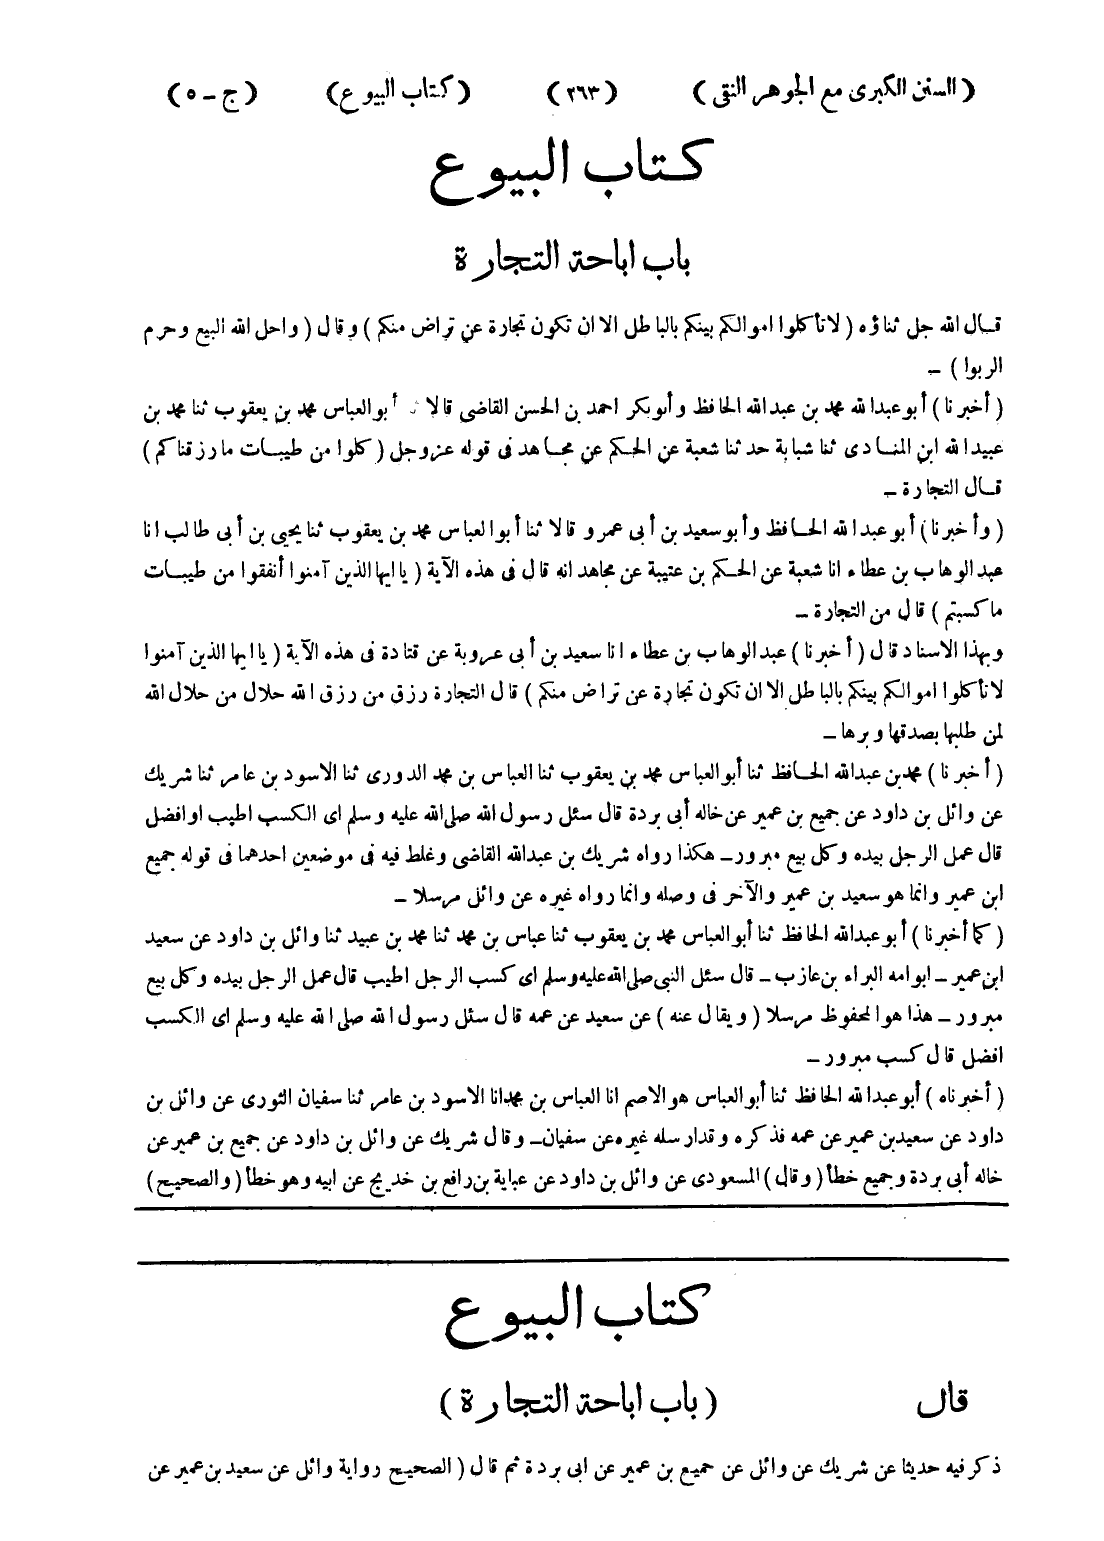 (السنن الكبرى مع الجوهر النقى) (٢٦٣) (كتاب البيوع) (ج - ٥)
كتاب البيوع
باب اباحة التجارة
قال الله جل ثناؤه (لا تأكلوا اموالكم بينكم بالباطل الا ان تكون تجارة عن تراض منكم) وقال (واحل الله البيع وحرم
الربوا) -
(أخبرنا) أبو عبد الله محمد بن عبد الله الحافظ وأبو بكر احمد بن الحسن القاضى قالا أبو العباس محمد بن يعقوب ثنا محمد بن
عبيد الله ابن المنادى ثنا شبابة حدثنا شعبة عن الحكم عن مجاهد فى قوله عز وجل (كلوا من طيبات ما رزقناكم)
قال التجارة -
(وأخبرنا) أبو عبد الله الحافظ وأبو سعيد بن أبى عمرو قالا ثنا أبو العباس محمد بن يعقوب ثنا يحيى بن أبى طالب انا
عبد الوهاب بن عطاء انا شعبة عن الحكم بن عتيبة عن مجاهد انه قال فى هذه الآية (يا ايها الذين آمنوا أنفقوا من طيبات
ما كسبتم) قال من التجارة -
وبهذا الاسناد قال (أخبرنا) عبد الوهاب بن عطاء انا سعيد بن أبى عروبة عن قتادة فى هذه الآية (يا ايها الذين آمنوا
لا تأكلوا اموالكم بينكم بالباطل الا ان تكون تجارة عن تراض منكم) قال التجارة رزق من رزق الله حلال من حلال الله
لمن طلبها بصدقها وبرها -
(أخبرنا) محمد بن عبد الله الحافظ ثنا أبو العباس محمد بن يعقوب ثنا العباس بن محمد الدورى ثنا الاسود بن عامر ثنا شريك
عن وائل بن داود عن جميع بن عمير عن خاله أبى بردة قال سئل رسول الله صلى الله عليه وسلم اى الكسب اطيب او افضل
قال عمل الرجل بيده وكل بيع مبرور - هكذا رواه شريك بن عبد الله القاضى وغلط فيه فى موضعين احدهما فى قوله جميع
ابن عمير وانما هو سعيد بن عمير والآخر فى وصله وانما رواه غيره عن وائل مرسلا -
(كما أخبرنا) أبو عبد الله الحافظ ثنا أبو العباس محمد بن يعقوب ثنا عباس بن محمد ثنا محمد بن عبيد ثنا وائل بن داود عن سعيد
ابن عمير - ابو امه البراء بن عازب - قال سئل النبى صلى الله عليه وسلم اى كسب الرجل اطيب قال عمل الرجل بيده وكل بيع
مبرور - هذا هو المحفوظ مرسلا (ويقال عنه) عن سعيد عن عمه قال سئل رسول الله صلى الله عليه وسلم اى الكسب
افضل قال كسب مبرور -
(أخبرناه) أبو عبد الله الحافظ ثنا أبو العباس هو الاصم انا العباس بن محمد انا الاسود بن عامر ثنا سفيان الثورى عن وائل بن
داود عن سعيد بن عمير عن عمه فذكره وقد ارسله غيره عن سفيان - وقال شريك عن وائل بن داود عن جميع بن عمير عن
خاله أبى بردة وجميع خطأ (وقال) المسعودى عن وائل بن داود عن عباية بن رافع بن خديج عن ابيه وهو خطأ (والصحيح)
كتاب البيوع
قال (باب اباحة التجارة)
ذكر فيه حديثا عن شريك عن وائل عن جميع بن عمير عن ابى بردة ثم قال (الصحيح رواية وائل عن سعيد بن عمير عن